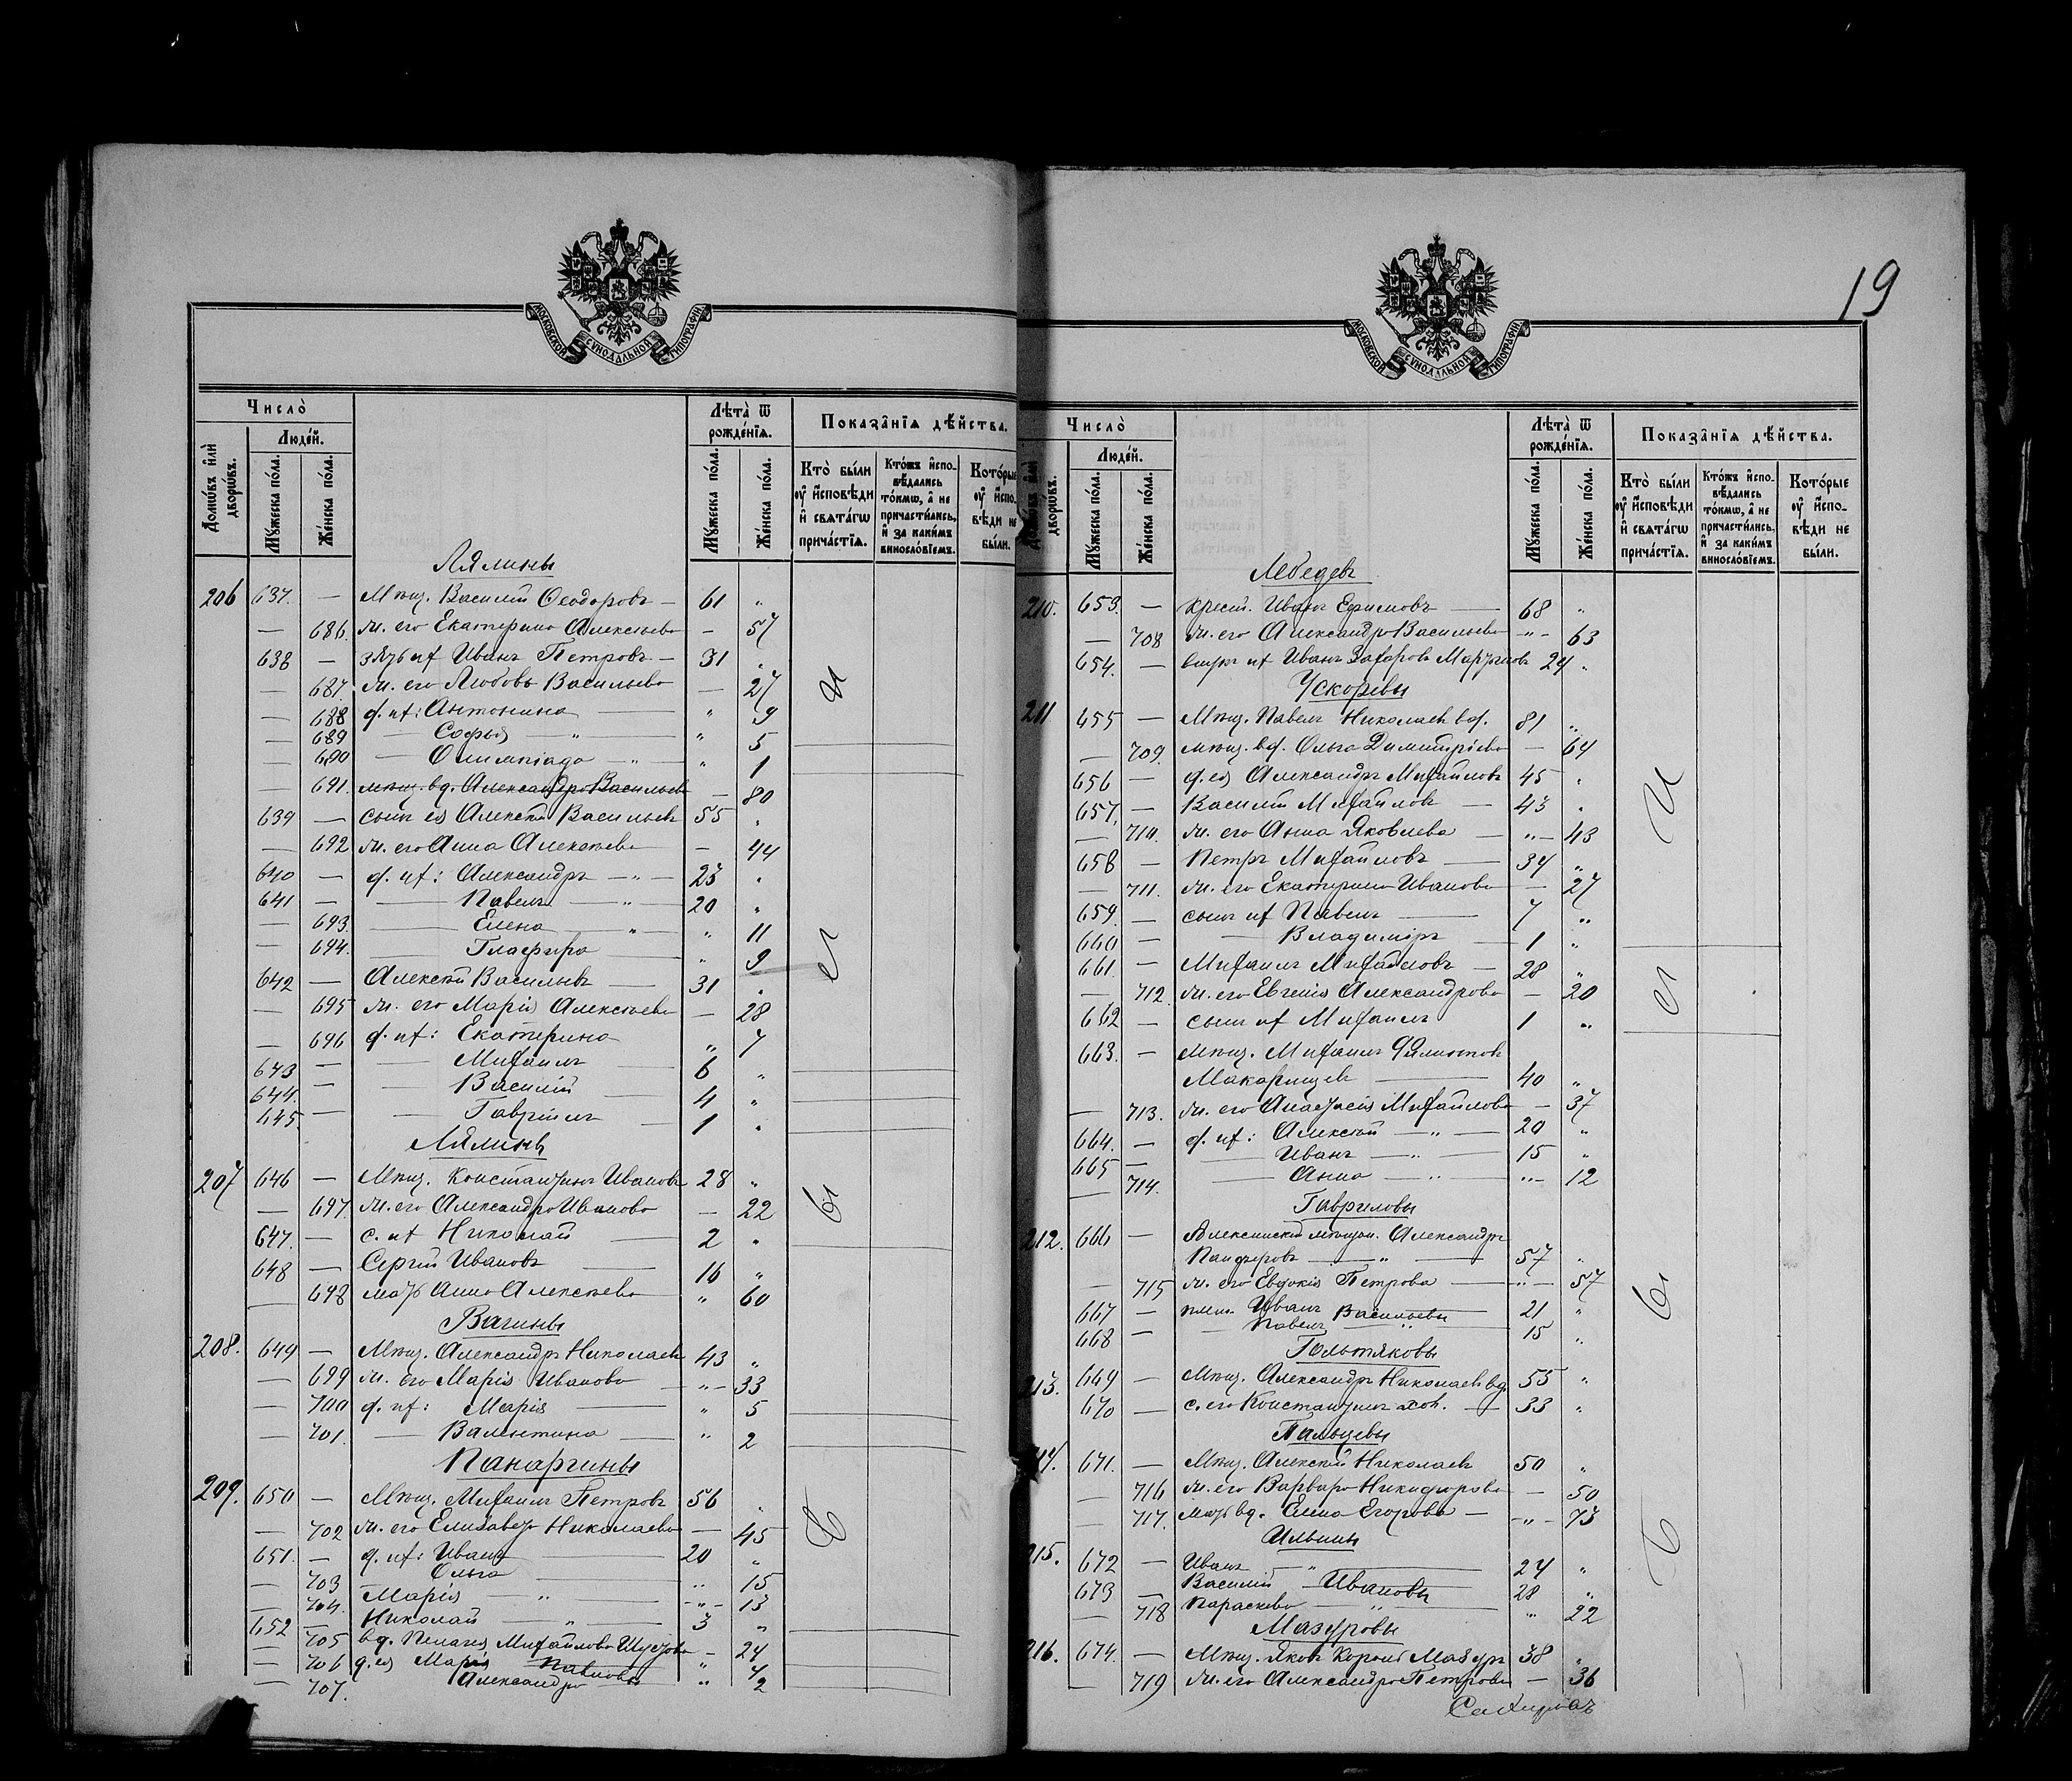 19
МОСКОВСКОЙ СѴНОДАЛЬНОЙ ТИПОГРАФІИ
Число̀
Домѡ́въ и҆лѝ дворѡ́въ.
Люде́й.
Мꙋ́жеска по́ла.
Же́нска по́ла.
Лѣ́та ѿ рожде́нїѧ.
Мꙋ́жеска по́ла.
Же́нска по́ла.
Показа̑нїѧ дѣ́йства.
Кто̀ бы́ли ᲂу҆ и҆́сповѣди и҆ свѧта́гѡ прича́стїѧ.
Кто́жъ и҆спо-вѣ́дались то́кмѡ, а҆ не причасти́лись, и҆ за каки́мъ винослѡ́вїемъ.
Кото́рые ᲂу҆ и҆́спо-вѣди не бы́ли.
Лялины
206 637. — Мѣщ. Василій Ѳеодоровъ — 61 "
— 686. ж. его Екатерина Алексѣева — 57
638 — зять их Иванъ Петровъ — 31 "
— 687 ж. его Любовь Васильева — 27
— 688 д. их: Антонина — " 9
— 689 — Софья — " — " 5
— 690 — Олимпіада — " — " 1
— 691. мѣщ. вд. Александра Васильев — 80
639 — сынъ ея Алексѣй Васильевъ 55 "
— 692 ж. его Анна Алексѣева — 44
640 — д. их: Александръ — " — 23 "
641 — — Павелъ — " — 20 "
— 693. — Елена — " — " 11
— 694. — Глафира — " 9
642 — Алексѣй Васильевъ — 31 "
— 695 ж. его Марія Алексѣева — 28
— 696 д. их: Екатерина " 7
643 — — Михаилъ — 6 "
644. — — Василій — 4 "
645 — — Гавріилъ — 1 "
Лялинъ
207 646 — Мѣщ. Константинъ Ивановъ 28 "
— 697. ж. его Александра Иванова — 22
647. — с. их Николай — 2 "
648 — Сергій Ивановъ — 16 "
— 698 мать Анна Алексѣева " 60
Вагины
208. 649 — Мѣщ. Александръ Николаевъ 43 "
— 699 ж. его Марія Иванова — " — 33
— 700 д. их: Марія — " 5
— 701. — Валентина — " 2
Панаргины
209. 650 — Мѣщ. Михаилъ Петровъ 56 "
— 702 ж. его Елизавета Николаева — 45
651. — д. их: Иванъ — 20 "
— 703 Ольга — " 15
— 704. Марія — " — " — 13
652 — Николай — " — 3 "
— 705 вд. Пелагея Михайлова Шустова — 24
— 706 д. ея Марія Павловы " 4
— 707. Александра " 2
Число̀
Домѡ́въ и҆лѝ дворѡ́въ.
Люде́й.
Мꙋ́жеска по́ла.
Же́нска по́ла.
Лѣ́та ѿ рожде́нїѧ.
Мꙋ́жеска по́ла.
Же́нска по́ла.
Показа̑нїѧ дѣ́йства.
Кто̀ бы́ли ᲂу҆ и҆́сповѣди и҆ свѧта́гѡ прича́стїѧ.
Кто́жъ и҆спо-вѣ́дались то́кмѡ, а҆ не причасти́лись. и҆ за каки́мъ винослѡ́вїемъ.
Кото́рые ᲂу҆ и҆́спо-вѣди не бы́ли.
МОСКОВСКОЙ СѴНОДАЛЬНОЙ ТИПОГРАФІИ
Лебедевъ
210. 653. — крест. Иванъ Ефимовъ — 68 "
— 708 ж. его Александра Васильева — " — 63
654. — внукъ их Иванъ Захаровъ 24 "
Ускоревы
211 455 — Мѣщ. Павелъ Николаевъ вд. 81 "
— 709. мѣщ. вд. Ольга Димитріева — 64
656 — д. ея Александръ Михайловъ 45 "
657. — Василій Михайловъ — 43 "
— 710. ж. его Анна Яковлева — " — 43
658 — Петръ Михайловъ — 34 "
— 711. ж. его Екатерина Иванова — 27
659. — сынъ их Павелъ — 7 "
660 — — Владиміръ — 1 "
661. — Михаилъ Михайловъ — 28 "
— 712. ж. его Евгенія Александрова — 20
662 — сынъ их Михаилъ 1 "
663. — Мѣщ. Михаилъ
Макарищевъ — 40 "
— 713. ж. его Анастасія Михайлова — 37
664. — д. их: Алексѣй — " — 20 "
665 — — Иванъ — " — 15 "
— 714. — Анна — " — " — 12
Гавриловы
212. 666 — Алексинскій мѣщан. Александръ
Панферовъ — " — 57 "
— 715 ж. его Евдокія Петрова — " — 57
667 — плем. Иванъ Васильевы 21 "
668 — — Павелъ " 15 "
Гольтяковы
213. 669 — Мѣщ. Александръ Николаевъ вд. 55 "
670 — с. его Константинъ хол. — 33 "
Пальцевы
214. 671. — Мѣщ. Алексѣй Николаевъ 50 "
— 716 ж. его Варвара Никифорова — 50
— 717. мать вд. Елена Егорова — " — 73
Ильины
215. 672 — Иванъ — " — 24 "
673 — Василій — Ивановы 28 "
— 718 Параскева — " — " 22
Мазуровы
216. 674. — Мѣщ. Яковъ Мазуръ 38 "
— 719 ж. его Александра Петрова — 36